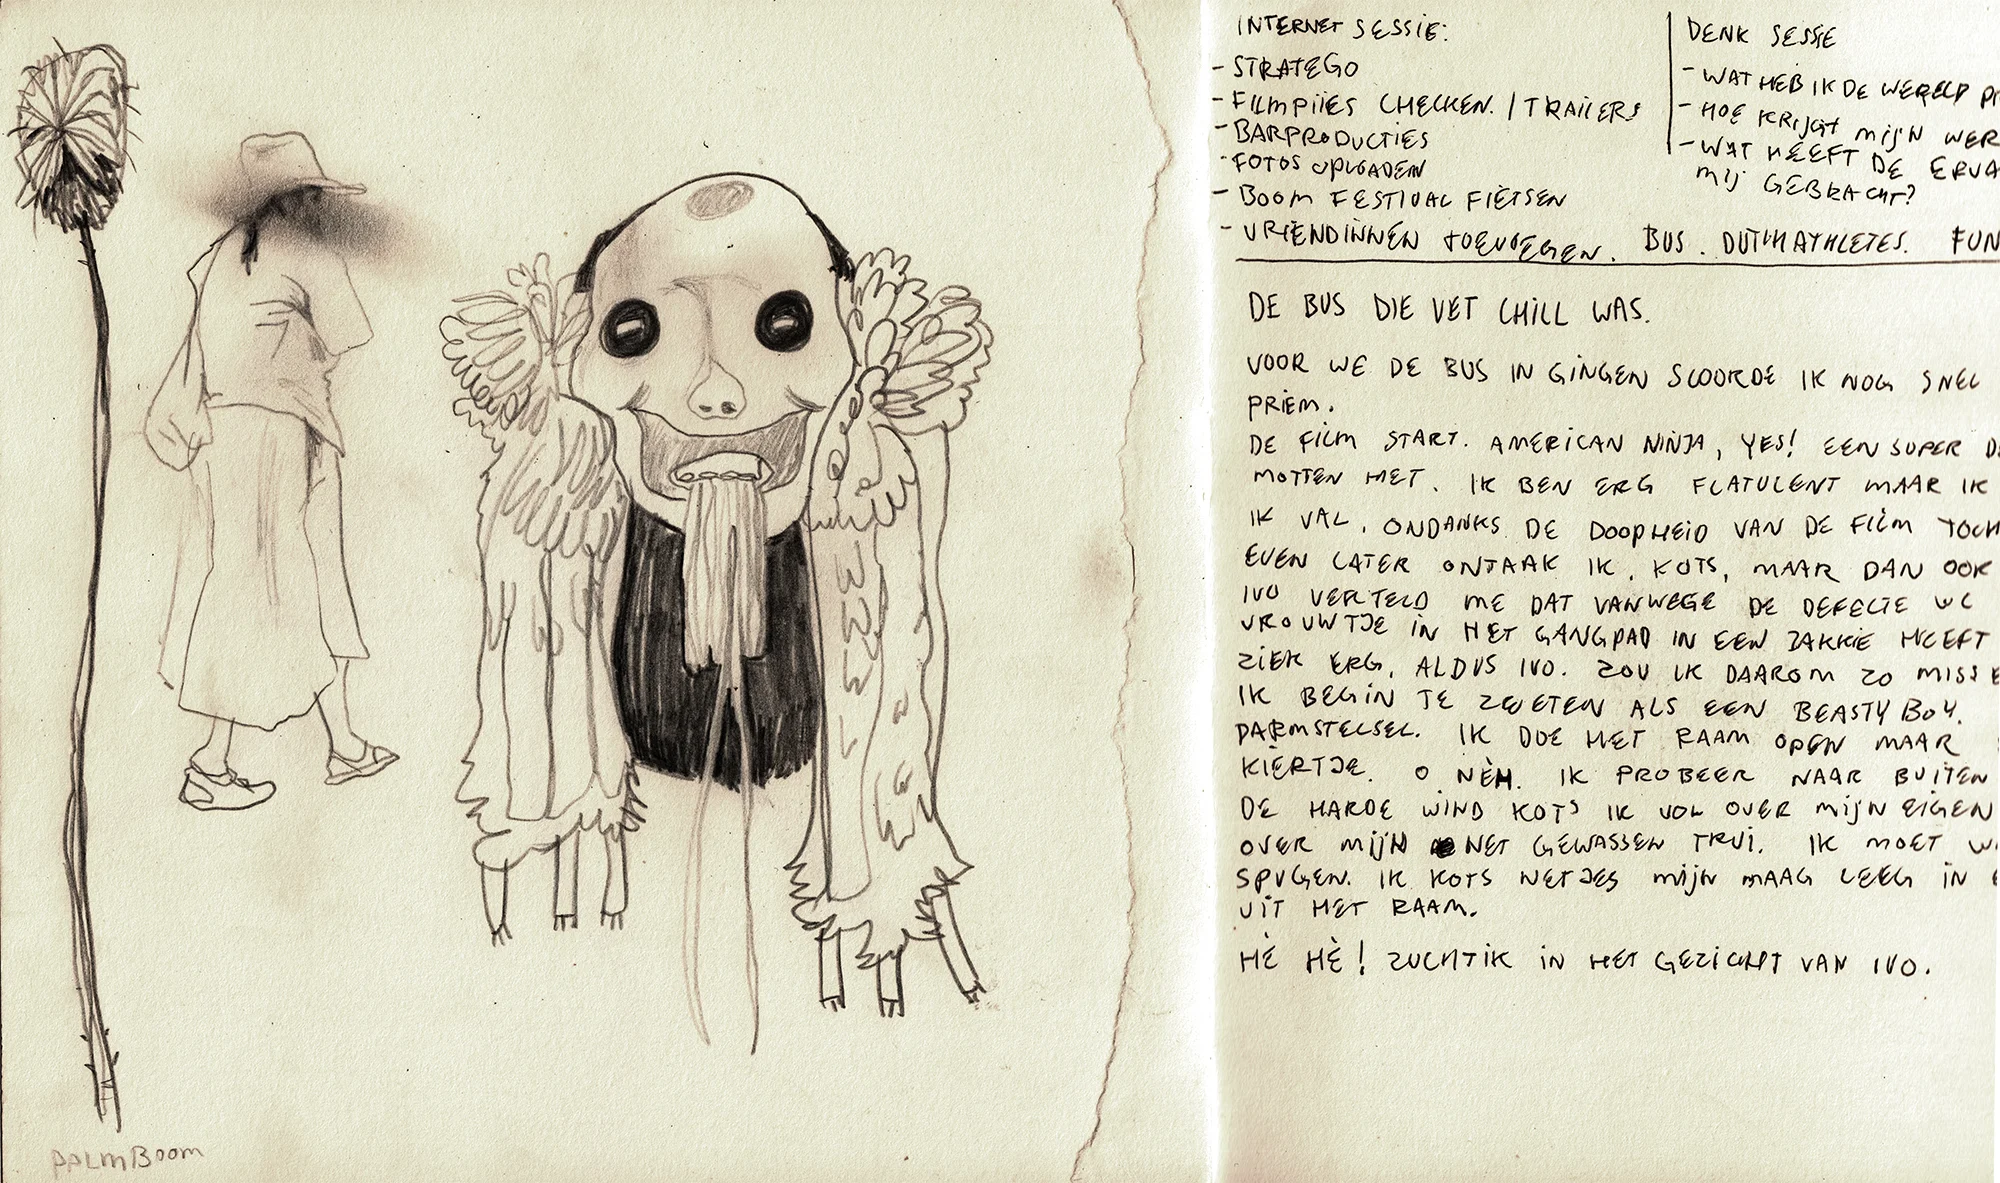 INTERNET SESSIE:
- STRATEGO
- FILMPIIES CHECKEN. / TRAILERS
- BARPRODUCTIES
- FOTOS UPLOADEN
- BOOM FESTIVAL FIETSEN
- VRIENDINNEN TOEVOEGEN. BUS. DUTCHATHLETES. FUN
DENK SESSIE
- WAT HEB IK DE WERELD
- HOE KRIJGT MIJN WER
- WAT HEEFT DE ERVA
MIJ GEBRACHT?
DE BUS DIE VET CHILL WAS.
VOOR WE DE BUS IN GINGEN SCOORDE IK NOG SNEL
PRIEM.
DE FILM START. AMERICAN NINJA, YES! EEN SUPER
MOTTEN HET. IK BEN ERG FLATULENT MAAR IK
IK VAL, ONDANKS DE DOOPHEID VAN DE FILM TOCH
EVEN LATER ONTAAK IK. KOTS, MAAR DAN OOK
IVO VERTELD ME DAT VANWEGE DE DEFECTE WC
VROUWTJE IN HET GANGPAD IN EEN ZAKKIE HEEFT
ZIEK ERG, ALDUS IVO. ZOU IK DAAROM ZO MISS
IK BEGIN TE ZWETEN ALS EEN BEASTY BOY.
DARMSTELSEL. IK DOE HET RAAM OPEN MAAR
KIERTJE. O NÈH. IK PROBEER NAAR BUITEN
DE HARDE WIND KOTS IK VOL OVER MIJN EIGEN
OVER MIJN NET GEWASSEN TRUI. IK MOET
SPUGEN. IK KOTS NETJES MIJN MAAG LEEG IN
UIT HET RAAM.
HÈ HÈ! ZUCHT IK IN HET GEZICHT VAN IVO.
PALMBOOM